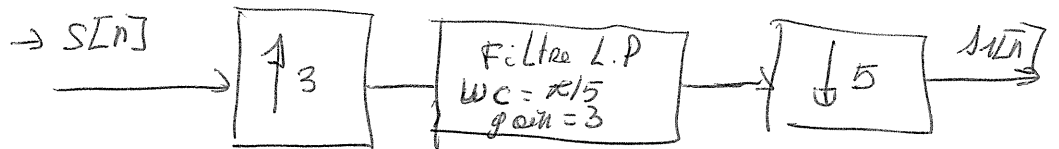 → S[n]
↑ 3
Filtre L.P
wc = π/5
gain = 3
↓ 5